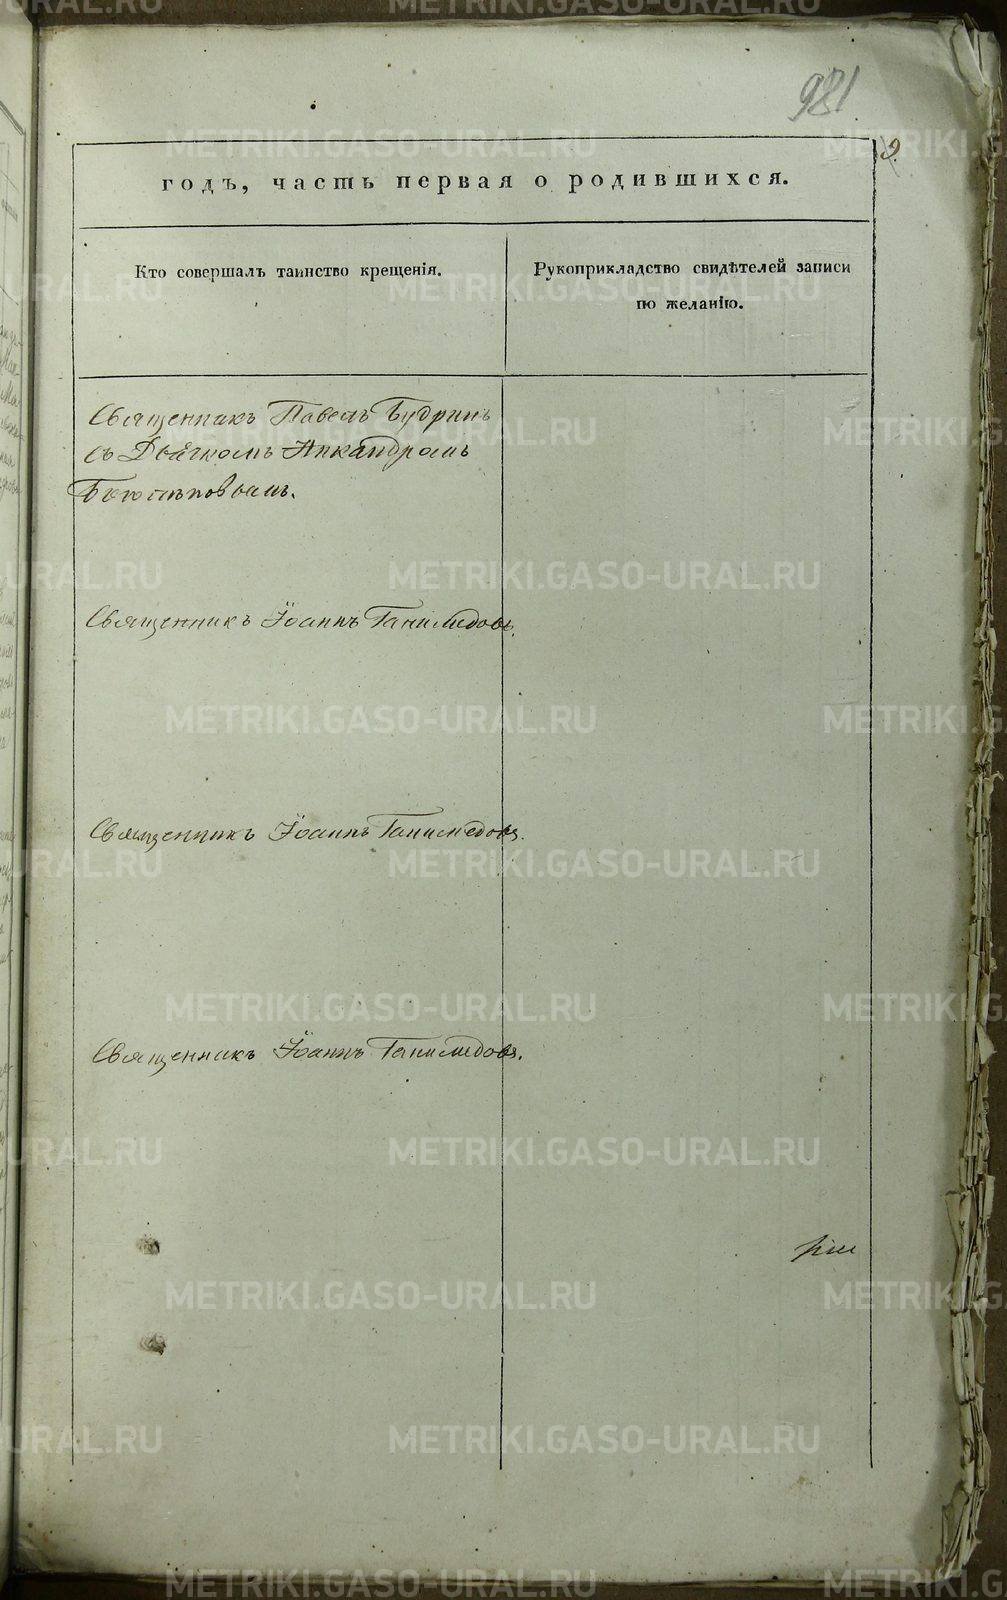 981
9.
годъ, часть первая о родившихся.
Кто совершалъ таинство крещенія.
Рукоприкладство свидѣтелей записи
по желанію.
Священникъ Павелъ Будринъ
съ Дьячкомъ Никандромъ
Священникъ Іоаннъ Ганимедовъ.
Священникъ Іоаннъ Ганимедовъ.
Священникъ Іоаннъ Ганимедовъ.
METRIKI.GASO-URAL.RU